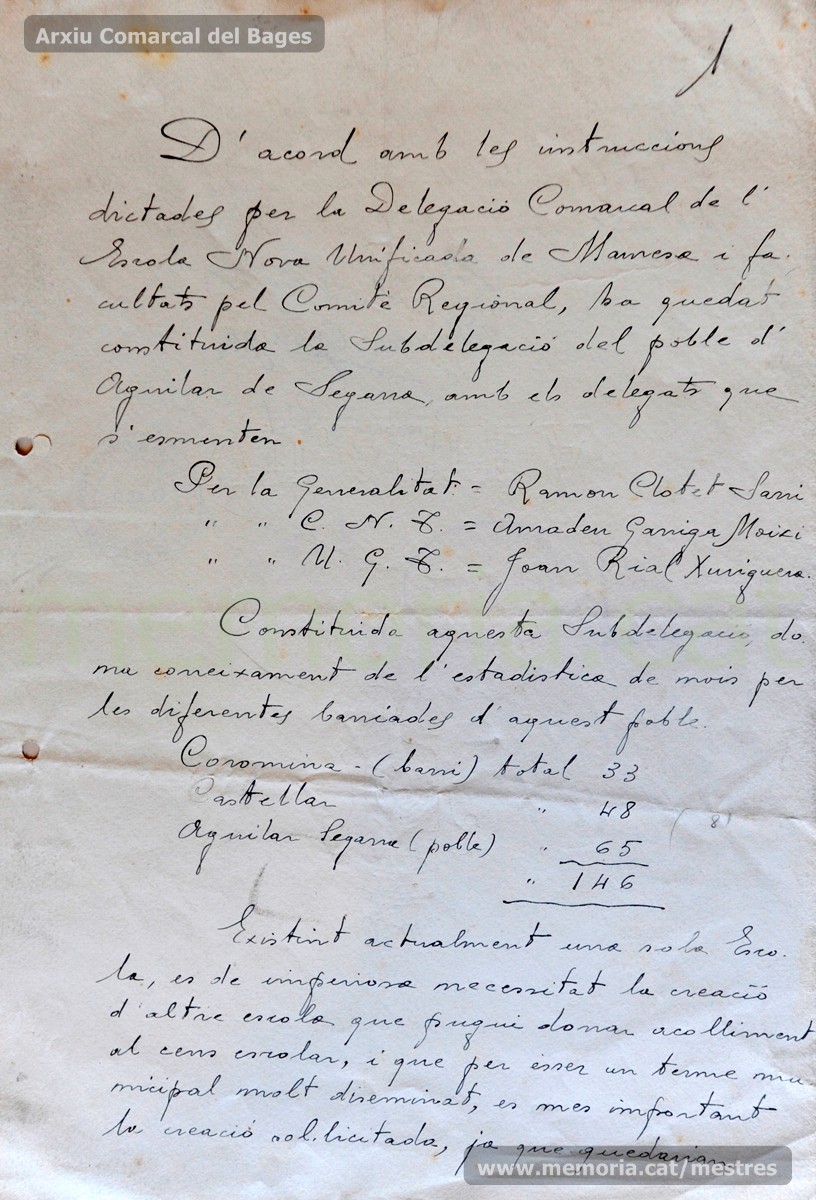 Arxiu Comarcal del Bages
1
D'acord amb les instruccions
dictades per la Delegació Comarcal de l'
Escola Nova Unificada de Manresa i fa-
cultats pel Comitè Regional, ha quedat
constituida la Subdelegació del poble d'
Aguilar de Segarra, amb els delegats que
s'esmenten.
Per la Generalitat = Ramon Clotet Sarri
" " C. N. T. = Amadeu Garriga Moixi
" " U. G. T. = Joan Rial Xuriguera.
Constituida aquesta Subdelegació, do-
na coneixament de l'estadistica de nois per
les diferentes barriades d'aquest poble.
Coromina - (barri) total 33
Castellar " 48 (8)
Aguilar Segarra (poble) " 65
" 146
Existint actualment una sola Esco-
la, es de imperiosa necessitat la creació
d'altre escola que pugui donar acolliment
al cens escolar, i que per ésser un terme mu
nicipal molt diseminat, es mes important
la creació sol.licitada, ja que quedarian
www.memoria.cat/mestres